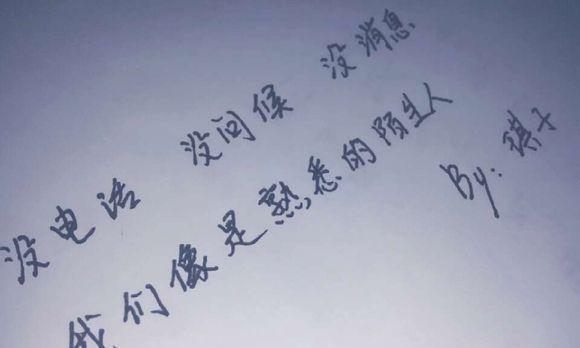 没电话 没问候 没消息
我们像是熟悉的陌生人
By: 琪子